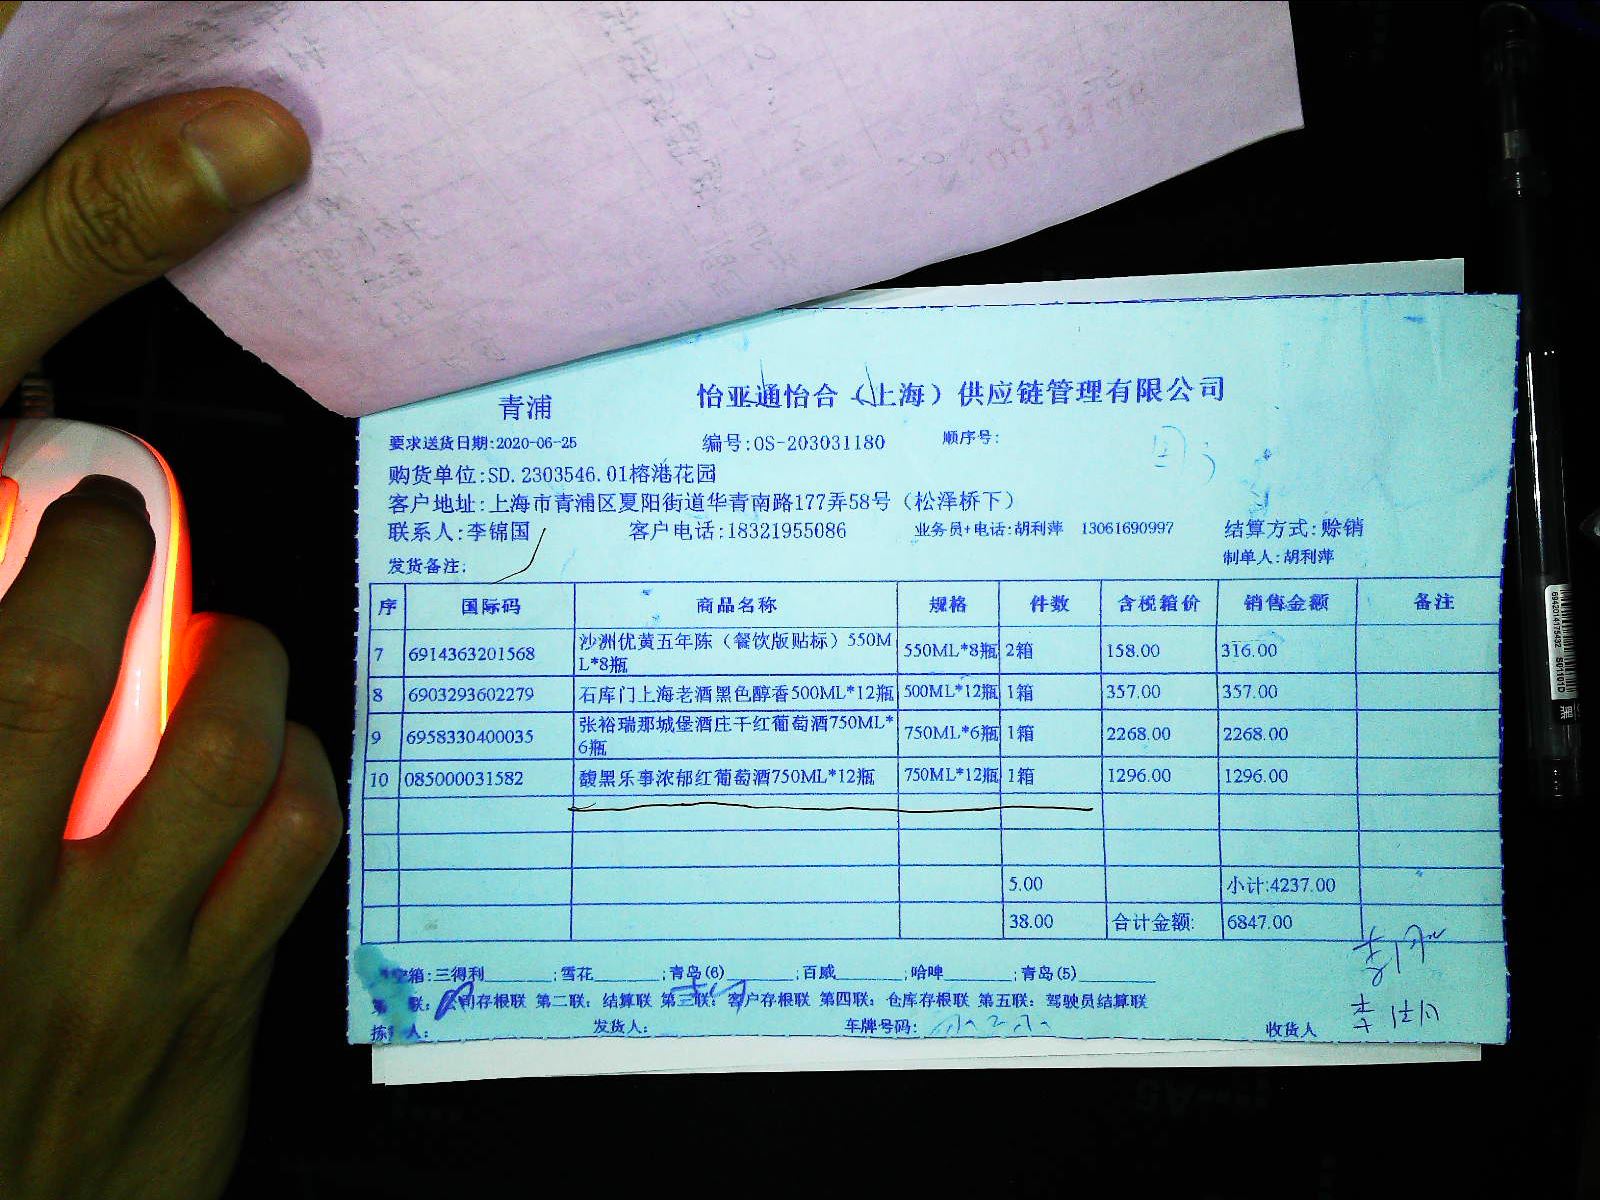 青浦
怡亚通怡合（上海）供应链管理有限公司
要求送货日期:2020-06-25 编号:OS-203031180 顺序号:
购货单位:SD.2303546.01榕港花园
客户地址:上海市青浦区夏阳街道华青南路177弄58号（松泽桥下）
联系人:李锦国 客户电话:18321955086 业务员+电话:胡利萍 13061690997 结算方式:赊销
发货备注: 制单人:胡利萍
序 国际码 商品名称 规格 件数 含税箱价 销售金额 备注
7 6914363201568 沙洲优黄五年陈（餐饮版贴标）550ML*8瓶 550ML*8瓶 2箱 158.00 316.00
8 6903293602279 石库门上海老酒黑色醇香500ML*12瓶 500ML*12瓶 1箱 357.00 357.00
9 6958330400035 张裕瑞那城堡酒庄干红葡萄酒750ML*6瓶 750ML*6瓶 1箱 2268.00 2268.00
10 085000031582 馥黑乐事浓郁红葡萄酒750ML*12瓶 750ML*12瓶 1箱 1296.00 1296.00
5.00 小计:4237.00
38.00 合计金额: 6847.00
空箱:三得利______;雪花______;青岛(6)______;百威______;哈啤______;青岛(5)______
联: 公司存根联 第二联: 结算联 第三联: 客户存根联 第四联: 仓库存根联 第五联: 驾驶员结算联
拣 人: 发货人: 车牌号码: 收货人